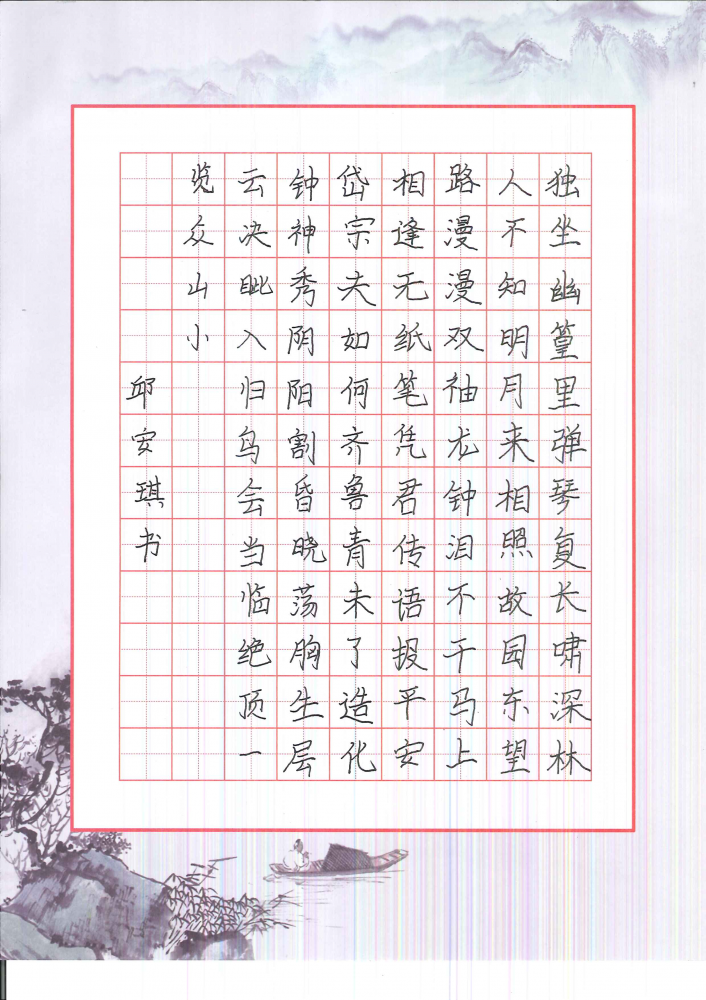 独坐幽篁里弹琴复长啸深林
人不知明月来相照故园东望
路漫漫双袖龙钟泪不干马上
相逢无纸笔凭君传语报平安
岱宗夫如何齐鲁青未了造化
钟神秀阴阳割昏晓荡胸生层
云决眦入归鸟会当临绝顶一
览众山小
邱安琪书